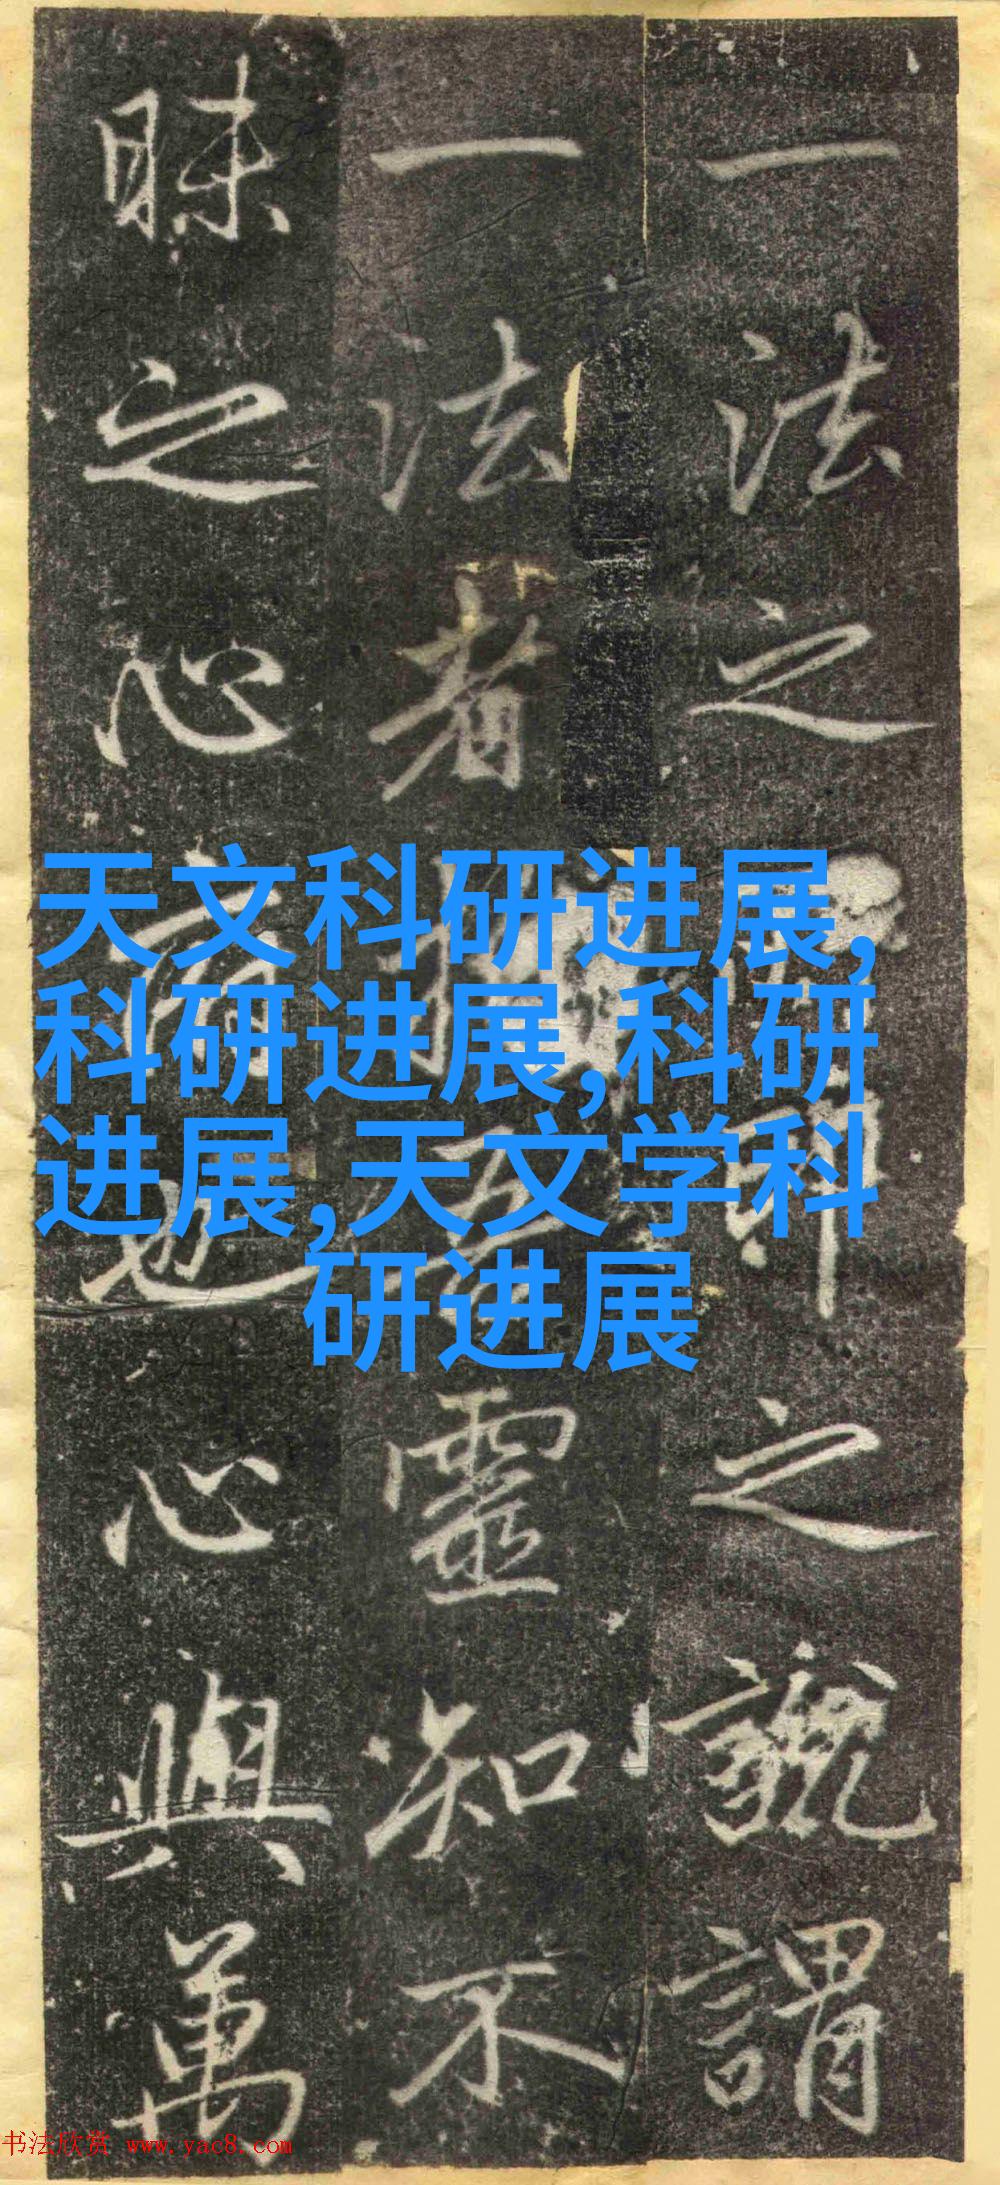 一法之之謂
一法者靈知不
昧之心也心與萬
天文科研进展,
科研进展,科研
进展,天文学科
研进展
书法欣赏 www.yac8.com